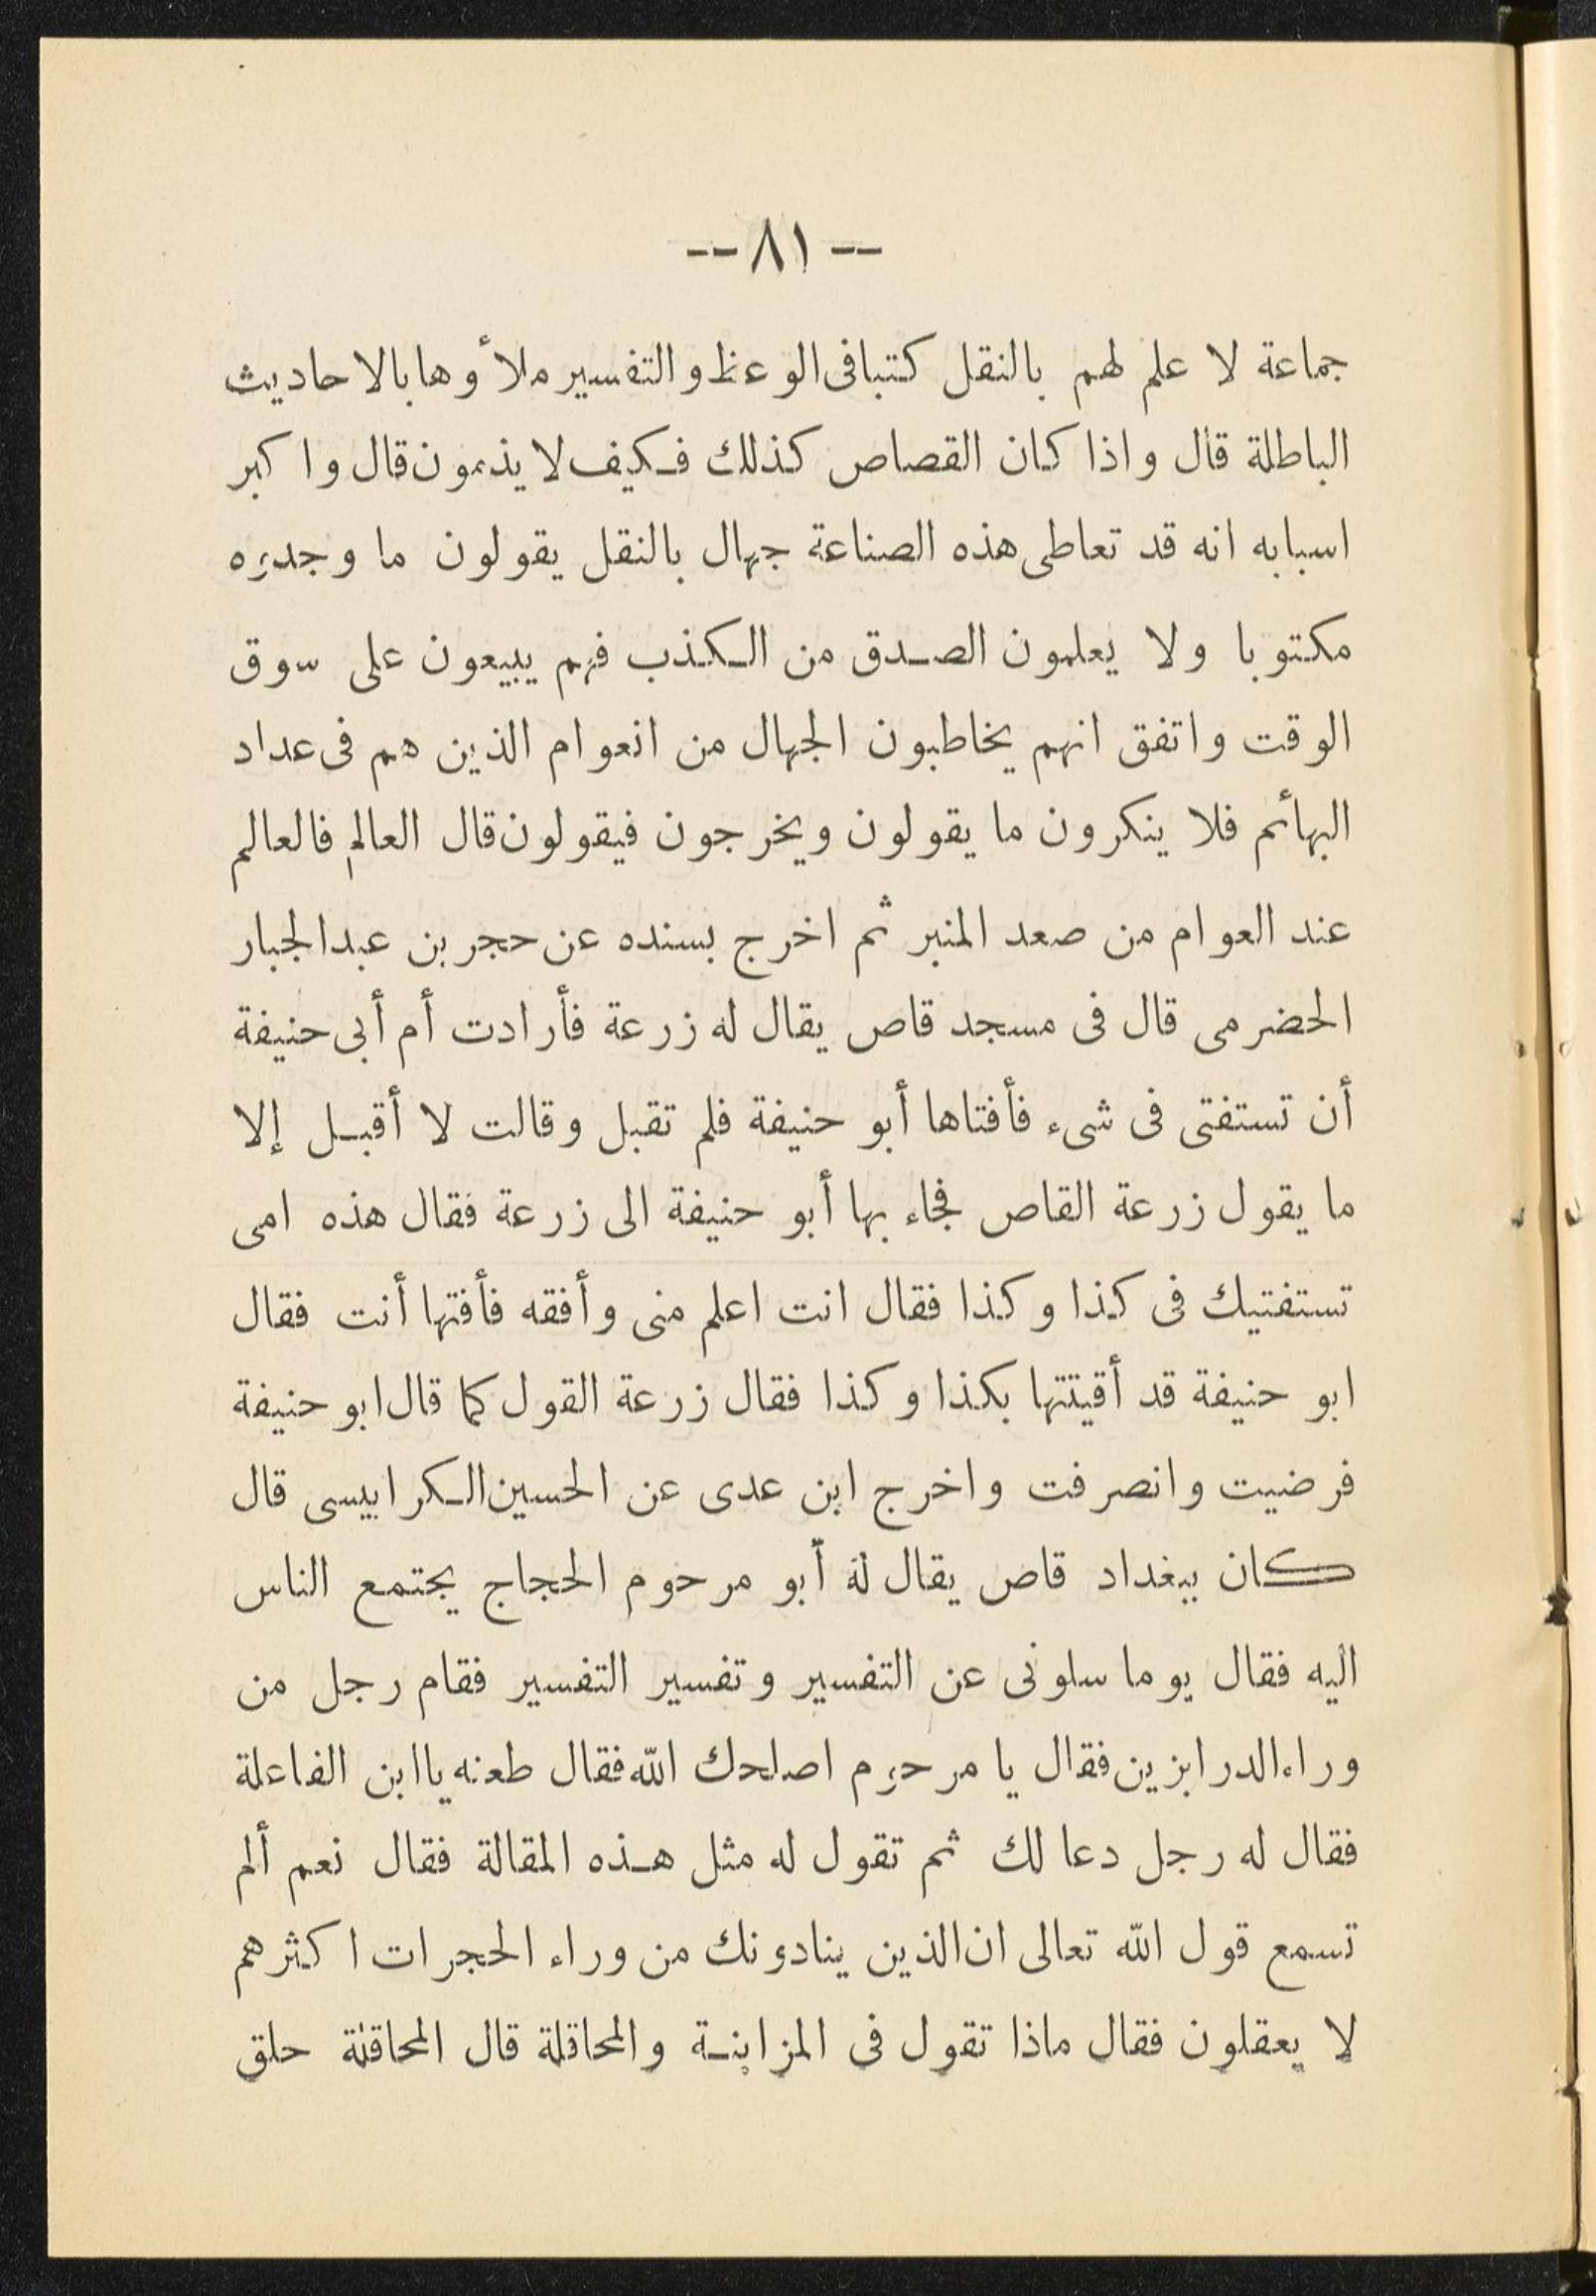 -- ٨١ --
جماعة لا علم لهم بالنقل كتبا فى الوعظ والتفسير ملأوها بالاحاديث
الباطلة قال واذا كان القصاص كذلك فكيف لا يذمون قال واكبر
اسبابه انه قد تعاطى هذه الصناعة جهال بالنقل يقولون ما وجدوه
مكتوبا ولا يعلمون الصدق من الكذب فهم يبيعون على سوق
الوقت واتفق انهم يخاطبون الجهال من العوام الذين هم فى عداد
البهائم فلا ينكرون ما يقولون ويخرجون فيقولون قال العالم فالعالم
عند العوام من صعد المنبر ثم اخرج بسنده عن حجر بن عبد الجبار
الحضرمى قال فى مسجد قاص يقال له زرعة فأرادت أم أبى حنيفة
أن تستفتى فى شىء فأفتاها أبو حنيفة فلم تقبل وقالت لا أقبل إلا
ما يقول زرعة القاص فجاء بها أبو حنيفة الى زرعة فقال هذه امى
تستفتيك فى كذا وكذا فقال انت اعلم منى وأفقه فأفتها أنت فقال
ابو حنيفة قد أقيتتها بكذا وكذا فقال زرعة القول كما قال ابو حنيفة
فرضيت وانصرفت واخرج ابن عدى عن الحسين الكرابيسى قال
كان ببغداد قاص يقال له أبو مرحوم الحجاج يجتمع الناس
اليه فقال يوما سلونى عن التفسير وتفسير التفسير فقام رجل من
وراء الدرابزين فقال يا مرحوم اصلحك الله فقال طعنه يا ابن الفاعلة
فقال له رجل دعا لك ثم تقول له مثل هذه المقالة فقال نعم ألم
تسمع قول الله تعالى ان الذين ينادونك من وراء الحجرات اكثرهم
لا يعقلون فقال ماذا تقول فى المزابنة والمحاقلة قال المحاقلة حلق